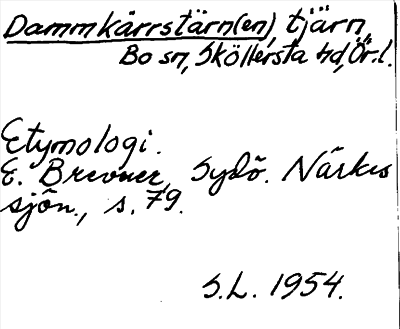 Dammkärrstärn(en), tjärn
Bo sn, Sköllersta hd, Ör. l.
Etymologi.
E. Brevner, Sydö. Närkes
sjön., s. 79.
S.L. 1954.